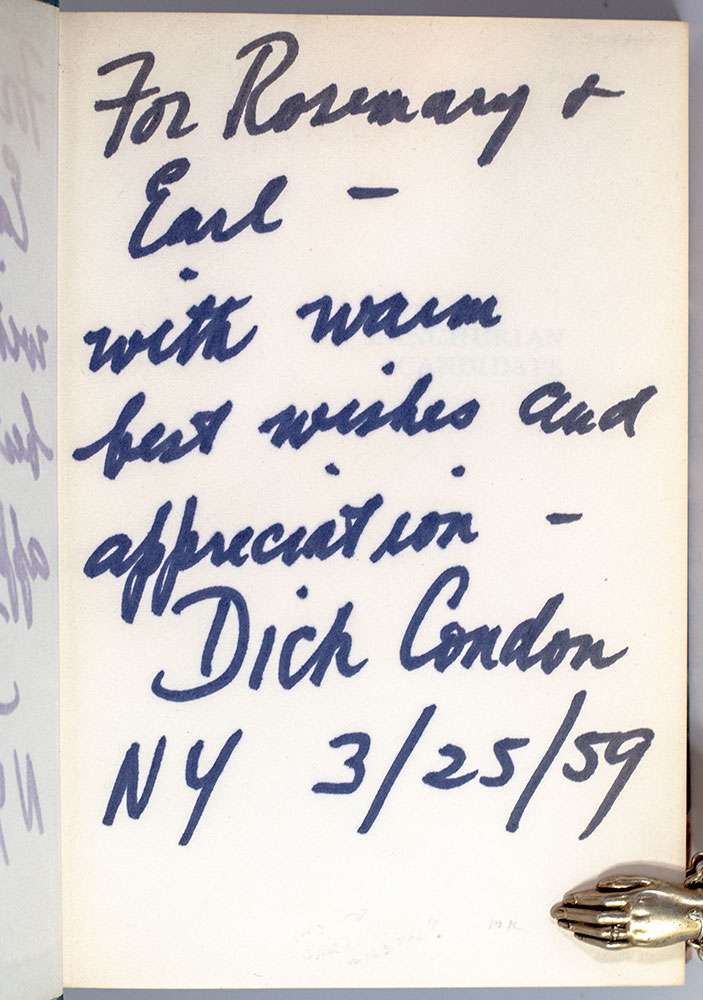 For Rosemary &
Earl –
with warm
MANCHURIAN
CANDIDATE
best wishes and
appreciation –
Dick Condon
NY 3/25/59